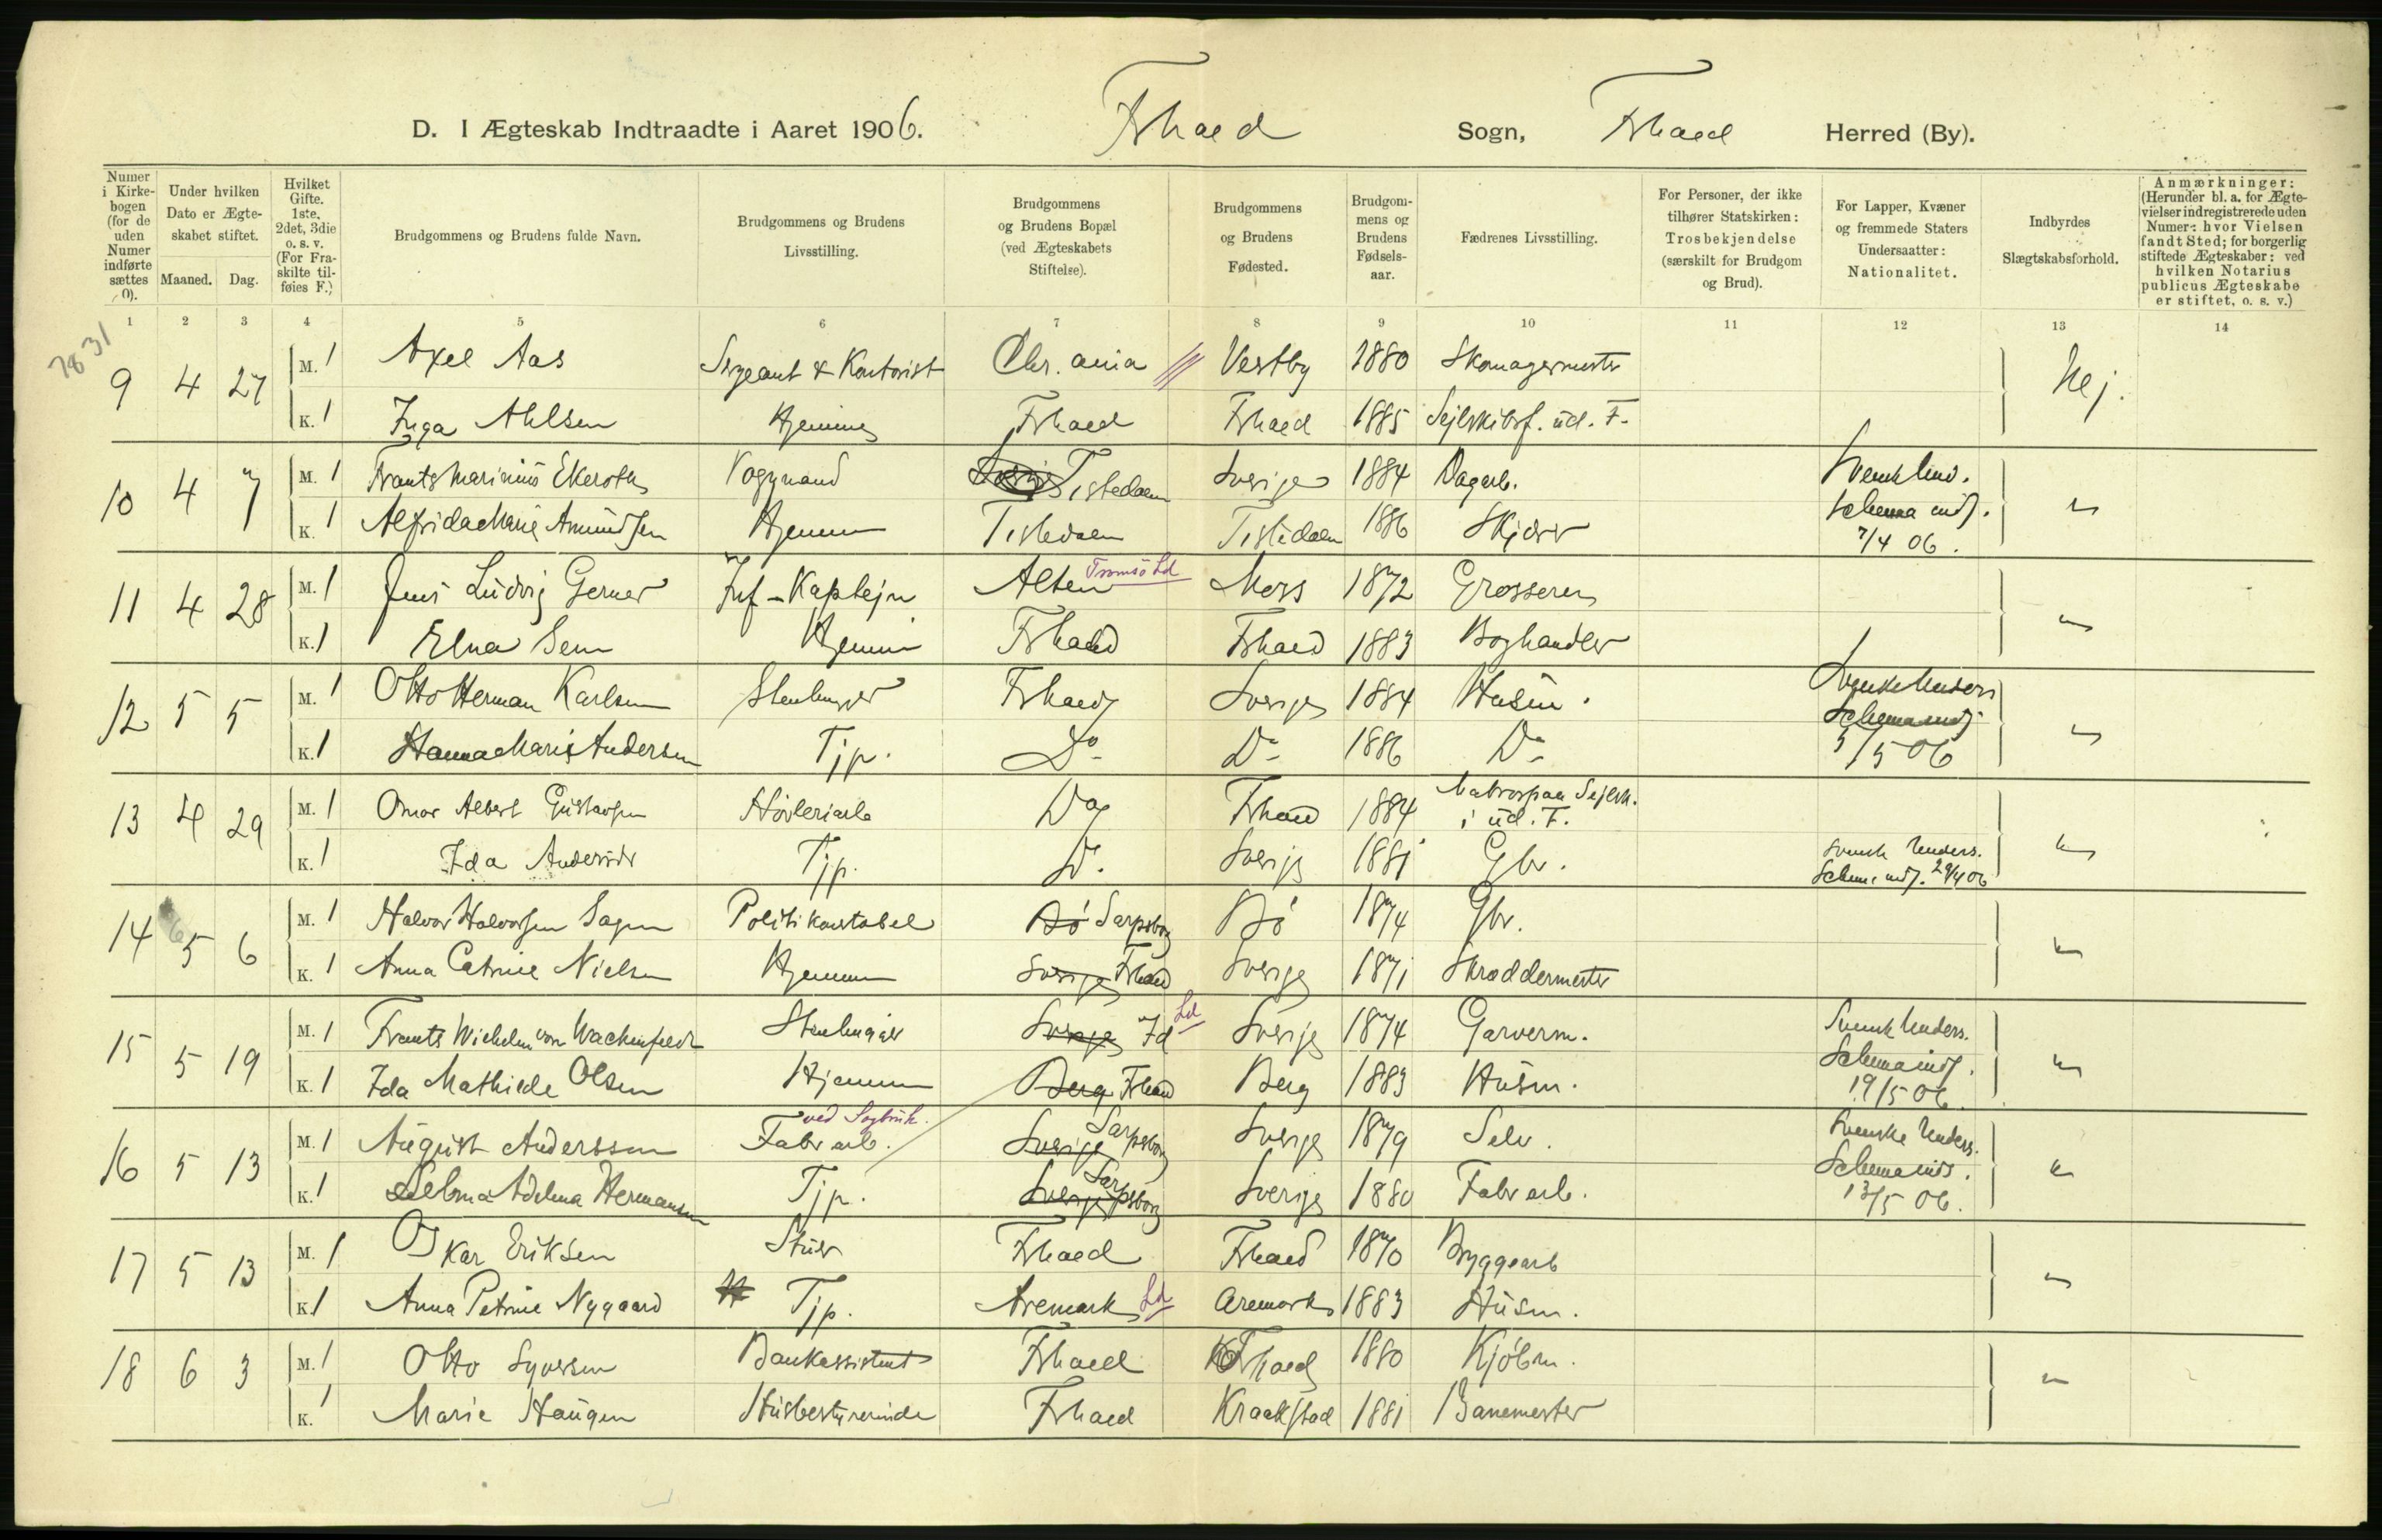 D. I Ægteskab Indtraadte i Aaret 1906. Fhald Sogn, Fhald Herred (By).
Numer i Kirkebogen (for de uden Numer indførte sættes 0).
Under hvilken Dato er Ægteskabet stiftet.
Maaned. Dag.
Hvilket Gifte. 1ste, 2det, 3die o. s. v. (For Fraskilte tilføies F.)
Brudgommens og Brudens fulde Navn.
Brudgommens og Brudens Livsstilling.
Brudgommens og Brudens Bopæl (ved Ægteskabets Stiftelse).
Brudgommens og Brudens Fødested.
Brudgommens og Brudens Fødselsaar.
Fædrenes Livsstilling.
For Personer, der ikke tilhører Statskirken: Trosbekjendelse (særskilt for Brudgom og Brud).
For Lapper, Kvæner og fremmede Staters Undersaatter: Nationalitet.
Indbyrdes Slægtskabsforhold.
Anmærkninger: (Herunder bl. a. for Ægtevielser indregistrerede uden Numer: hvor Vielsen fandt Sted; for borgerlig stiftede Ægteskaber: ved hvilken Notarius publicus Ægteskabe er stiftet, o. s. v.)
1 2 3 4 5 6 7 8 9 10 11 12 13 14
7831
9 4 27 M. 1 Axel Aas Sergeant & Kontorist Chr.ania Vestby 1880 Skomagermester Nej.
K. 1 Inga Ahlsen Hjemme Fhald Fhald 1885 Sejlskibsf. ud. F.
10 4 7 M. 1 Frants Marinius Ekeroth Vognmand Sverige Tistedalen Sverige 1884 Dagarb. Svensk Und.
K. 1 Alfrida Marie Amundsen Hjemme Tistedalen Tistedalen 1886 Skjær Schema inds.
7/4 06.
11 4 28 M. 1 Jens Ludvig Gerner Inf-Kaptejn Alten Tromsø Ld Moss 1872 Grosserer
K. 1 Elna Sem Hjemme Fhald Fhald 1883 Boghandler
12 5 5 M. 1 Otto Herman Karlsen Stenhugger Fhald Sverige 1884 Husm. Svenske Unders
Schema inds
K. 1 Hanna Marie Andersen Tjp. Do Do 1886 Do 5/5 06
13 4 29 M. 1 Omar Albert Gustavsen Høvleriarb Do Fhald 1884 Matros paa Sejlsk. i ud. F.
K. 1 Ida Do Tjp. Sverige 1881 Gbr. Svensk Unders.
Schema inds. 29/4 06
14 5 6 M. 1 Halvor Halvorsen Sagen Politikonstabel Bø Sarpsborg Bø 1874 Gbr.
K. 1 Anna Catrine Nielsen Hjemme Sverige Fhald Sverige 1871 Skræddermester
15 5 19 M. 1 Frants Wilhelm von Wachenfeldt Stenhugger Sverige Id Ld Sverige 1874 Garverm. Svensk Unders.
Schema inds.
K. 1 Ida Mathilde Olsen Hjemme Berg Fhald Berg 1883 Husm. 19/5 06.
ved Sagbruk.
16 5 13 M. 1 August Anderssen Fabr arb. Sverige Sarpsborg Sverige 1879 Selv. Svenske Unders.
Schema inds.
K. 1 Selma Adelma Hermansen Tjp. Sverige Sarpsborg Sverige 1880 Fabr arb. 13/5 06.
17 5 13 M. 1 Oskar Eriksen Stuer Fhald Fhald 1870 Bryggearb
K. 1 Anna Petrine Nygaard Tjp. Aremark Ld Aremark 1883 Husm.
18 6 3 M. 1 Otto Syversen Bankassistent Fhald Fhald 1880 Kjøbm.
K. 1 Marie Haugen Husbestyrerinde Fhald Kraakstad 1881 Banemester